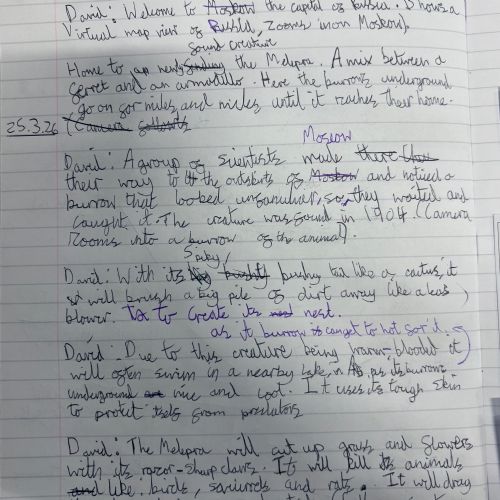 David: Welcome to Moskow the capital of Russia. (Shows a
Virtual map view of Russia, Zooms in on Moskow).
found creature
Home to an newly the Melepra. A mix between a
ferret and an armadillo. Here the burrows underground
go on for miles and miles until it reaches their home.
25.3.26 (Camera
Moscow
David: A group of scientists made there
their way to the outskirts of Moskow and noticed a
burrow that looked unfamiliar, so they waited and
caught it. The creature was found in 1904 (Camera
Zooms into a burrow of the animal).
Spiky,
David: With its big bushy bushy tail like a cactus, it
will brush a big pile of dirt away like a leaf
blower. To create its nest.
as it burrow can get to hot for it.
David: Due to this creature being warm-blooded it
will often swim in a nearby lake, in As its burrows
underground are nice and cool. It uses its tough skin
to protect itself from predators
David: The Melepra will cut up grass and flowers
with its razor-sharp claws. It will kill animals
and like: birds, squirrels and rats. It will drag